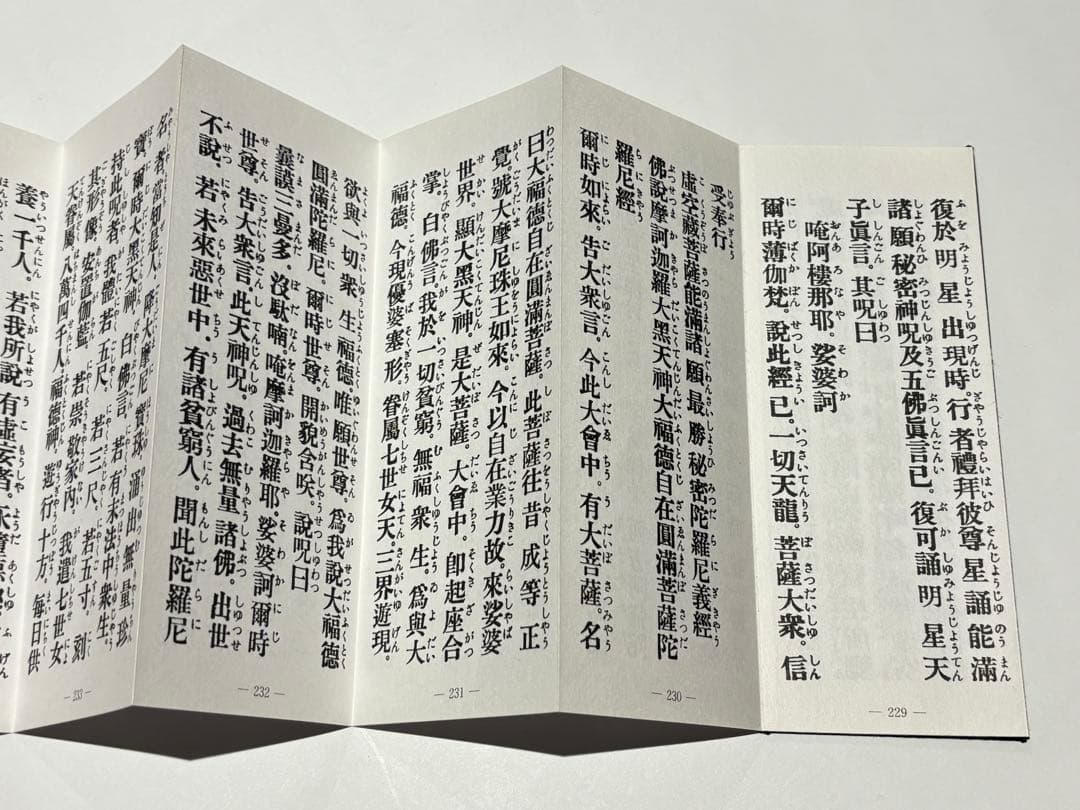 復於明星出現時。行者禮拜彼尊星誦能滿
諸願秘密神呪及五佛眞言已。復可誦明星天
子眞言。其呪曰
唵阿樓那耶。娑婆訶
爾時薄伽梵。說此經已。一切天龍。菩薩大衆。信
— 229 —
受奉行
虛空藏菩薩能滿諸願最勝秘密陀羅尼義經
佛說摩訶迦羅大黑天神大福德自在圓滿菩薩陀
羅尼經
爾時如來。告大衆言。今此大會中。有大菩薩。名
— 230 —
曰大福德自在圓滿菩薩。此菩薩往昔成等正
覺號大摩尼珠王如來。今以自在業力故。來娑婆
世界。顯大黑天神。是大菩薩。大會中。卽起座合
掌。白佛言。我於一切貧窮。無福衆生。爲與大
福德。今現優婆塞形。眷屬七世女天。三界遊現。
— 231 —
欲與一切衆生福德唯願世尊。爲我說大福德
圓滿陀羅尼。爾時世尊。開貌含咲。說呪曰
曩謨三曼多。沒駄喃。唵摩訶迦羅耶。娑婆訶爾時
世尊。告大衆言。此天神呪。過去無量諸佛。出世
不說。若未來惡世中。有諸貧窮人。聞此陀羅尼
— 232 —
名者。當知是人。降大摩尼寶珠涌出無量珍
寶爾時大黑天神。白佛言。若有末法中衆生。
持此呪者。我體若五尺。若三尺。若五寸。刻
其形像。安置伽藍。若崇敬家內。我遣七世女
天眷屬。八萬四千人。福德神。遊行十方。每日供
— 233 —
養一千人。若我所說有虛妄者。永墮惡